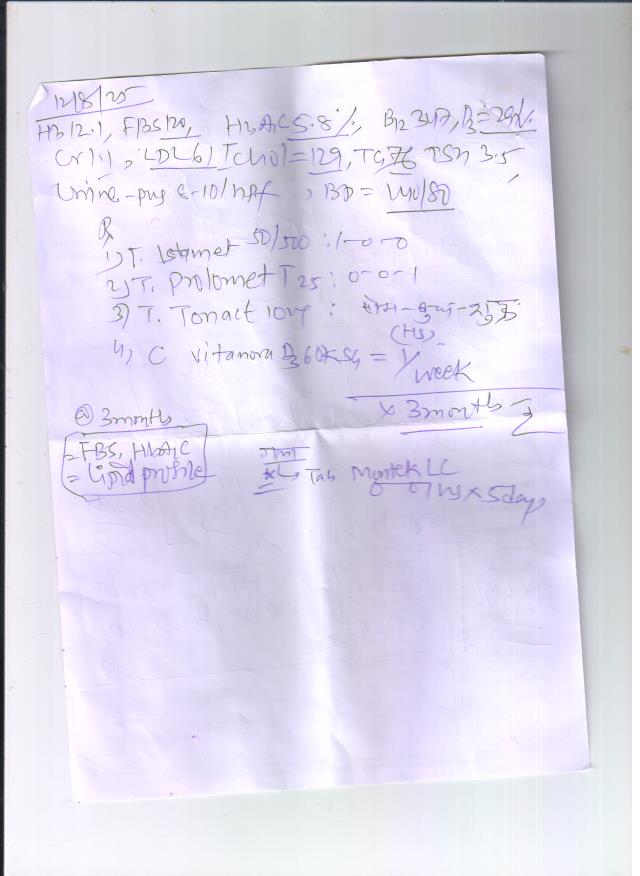 12/8/25
Hb 12.1, FBS 120, HbA1C 5.8%, B12 347, D3=29
Cr 1.1, LDL 61 Tchol=129, TG 76 TSH 3.5,
Urine-pus 8-10/hpf, BP = 140/80
Rx
1) T. Istamet 50/500 : 1-0-0
2) T. Prolomet T 25 : 0-0-1
3) T. Tonact 10mg : सोम - बुध - शुक्र
(HS)
4) C vitanova D3 60K SG = 1/week
x 3 months
@ 3 months
= FBS, HbA1C
= Lipid profile
* Tab Montek LC
0 0 1 HS x 5 days